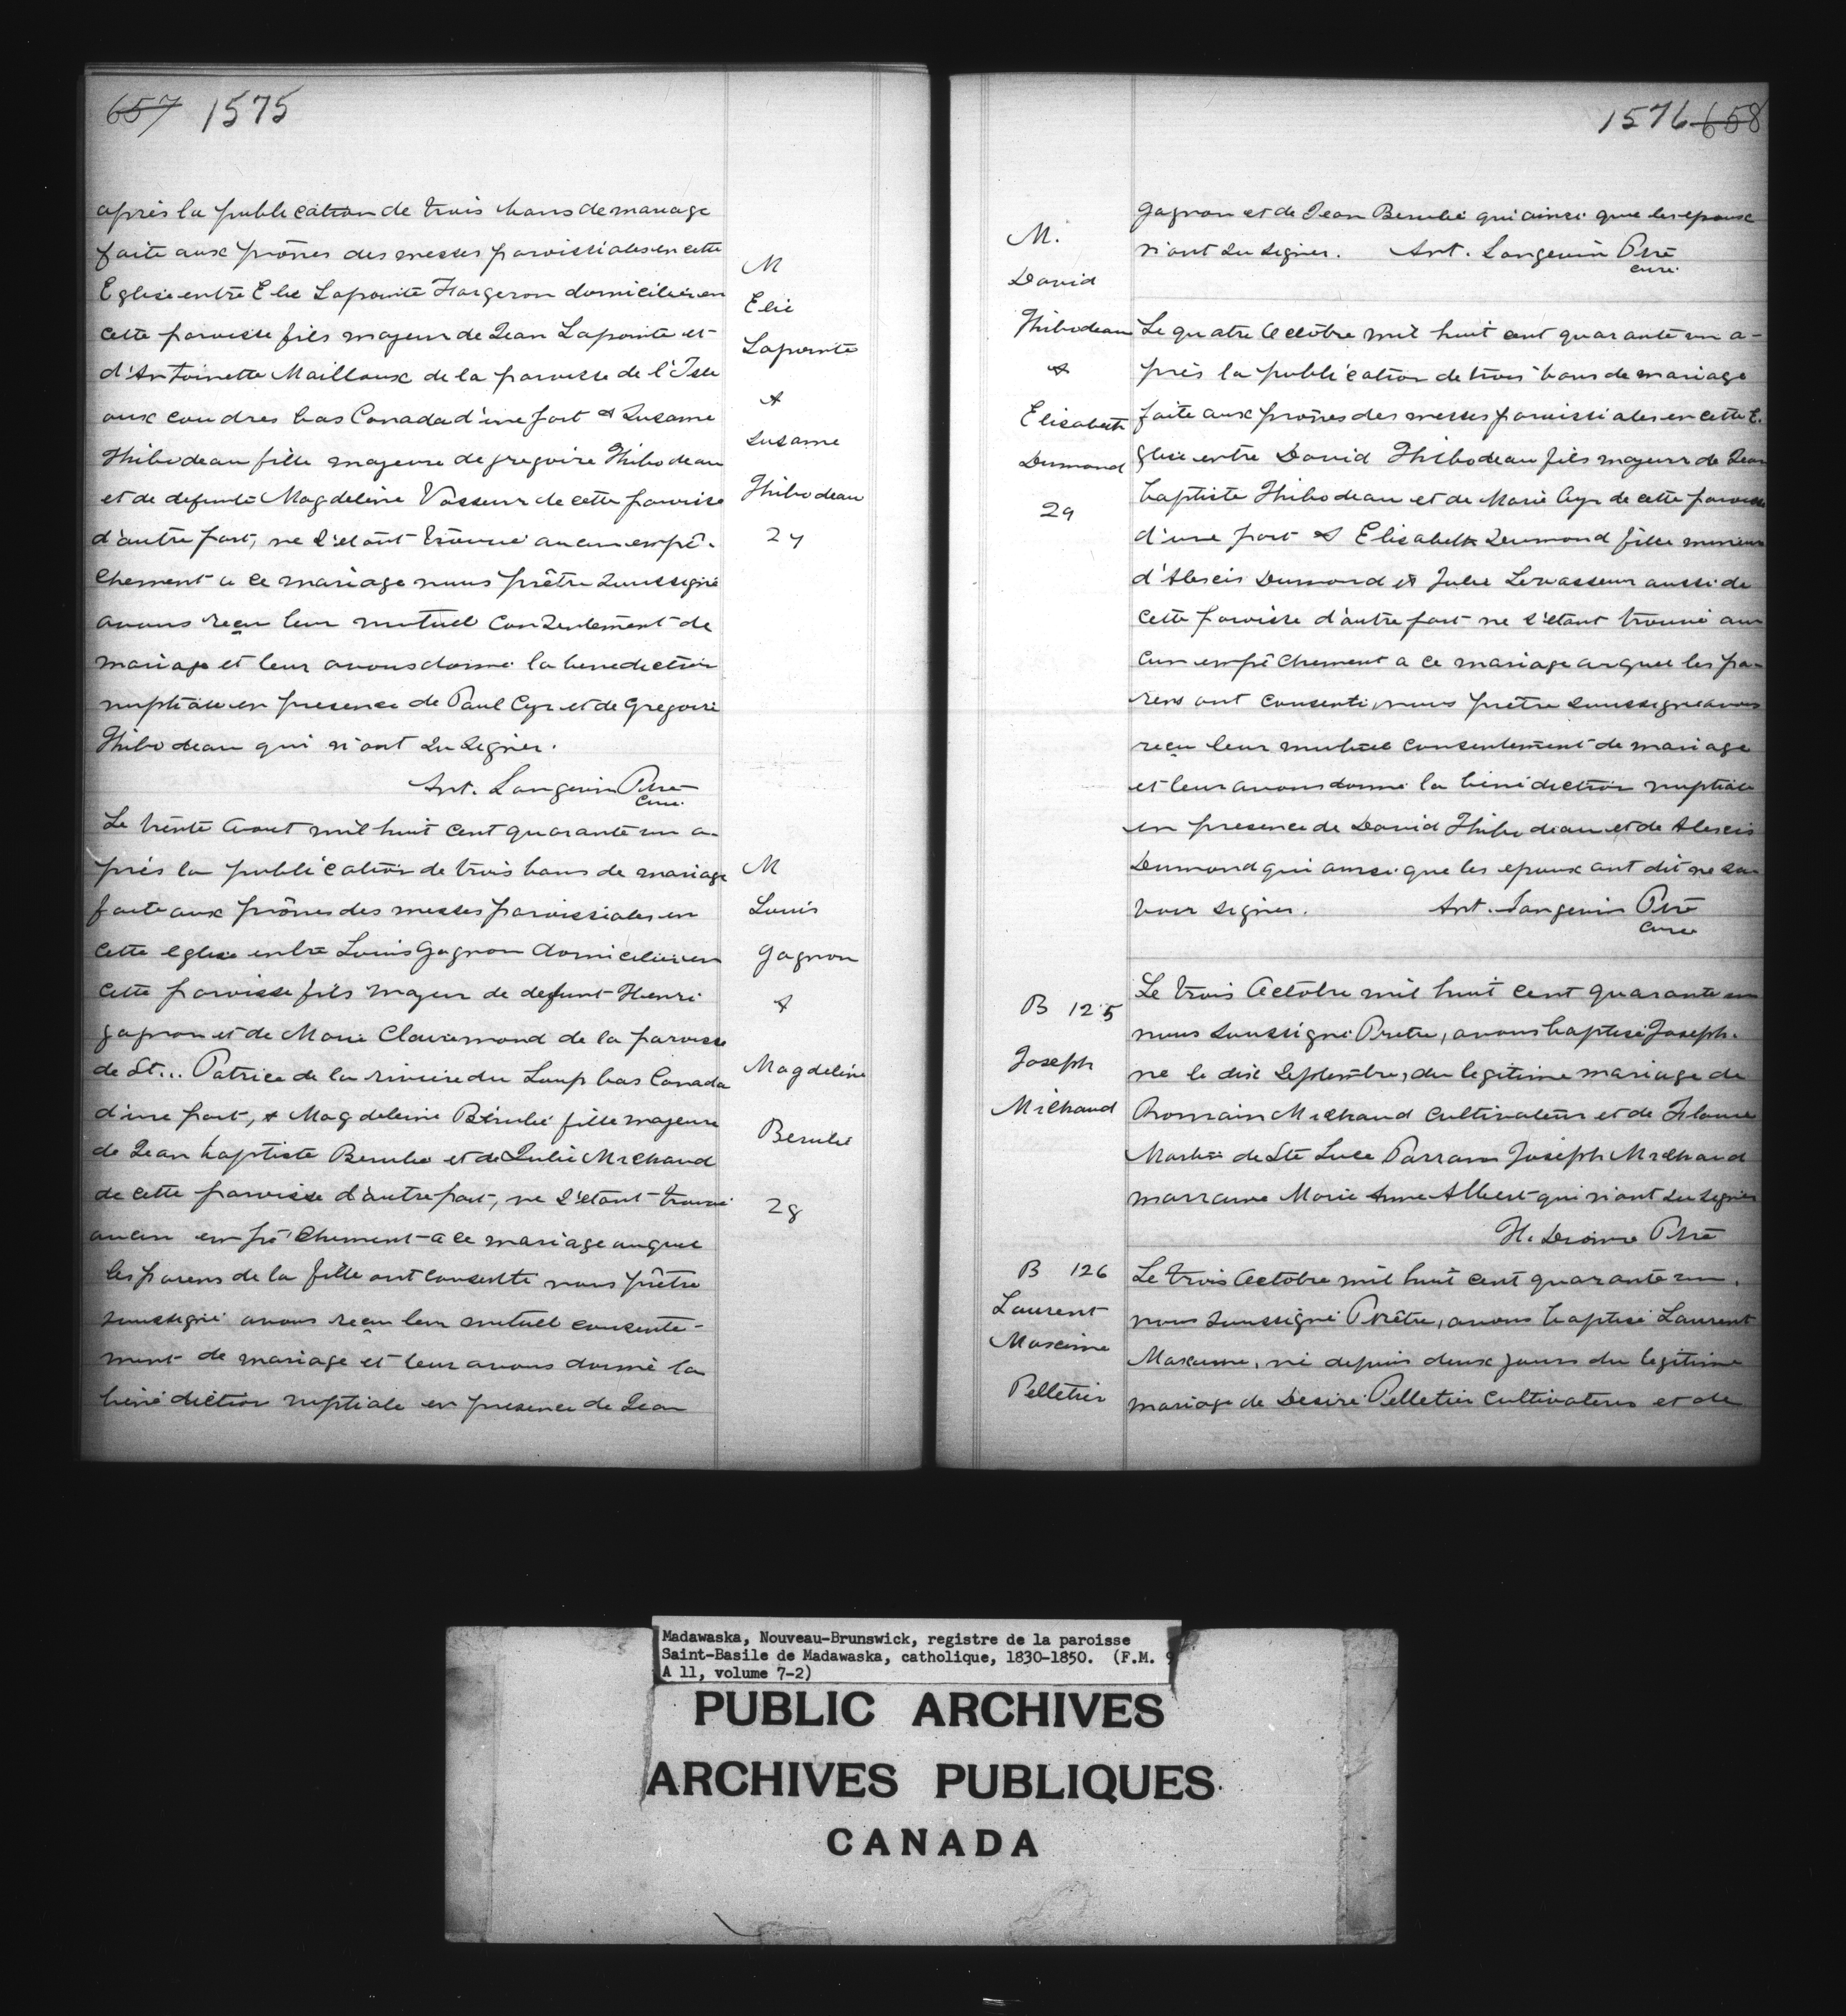 657 1575
après la publication de trois bans de mariage
faite aux prônes des messes paroissiales en cette
Eglise entre Elie Lapointe Forgeron domicilié en
cette paroisse fils majeur de Jean Lapointe et
d'Antoinette Mailloux de la paroisse de l'Isle
aux coudres bas Canada d'une part & Susanne
Thibodeau fille majeure de gregoire Thibodeau
et de defunte Magdeleine Vasseur de cette paroisse
d'autre part, ne s'etant trouvé aucun empê-
chement a ce mariage nous prêtre Soussigné
avons reçu leur mutuel consentement de
mariage et leur avons donné la benediction
nuptiale en presence de Paul Cyr et de Gregoire
Thibodeau qui n'ont su signer.
Ant. Langevin Ptre
curé.
M
Elie
Lapointe
&
Susanne
Thibodeau
27
Le trente Aout mil huit cent quarante un a-
près la publication de trois bans de mariage
faite aux prônes des messes paroissiales en
cette eglise entre Louis Gagnon domicilié en
cette paroisse fils majeur de defunt Henri
gagnon et de Marie Clairemond de la paroisse
de St... Patrice de la riviere du Loup bas Canada
d'une part, & Magdeleine Bérubé fille majeure
de Jean baptiste Berube et de Julie Michaud
de cette paroisse d'autre part, ne s'etant trouvé
aucun empêchement a ce mariage auquel
les parens de la fille ont consenti nous prêtre
soussigné avons reçu leur mutuel consente-
ment de mariage et leur avons donné la
bénédiction nuptiale en presence de Jean
M
Louis
Gagnon
&
Magdeleine
Berubé
28
1576 658
gagnon et de Jean Berubé qui ainsi que les epoux
n'ont su signer. Ant. Langevin Ptre
curé.
M.
David
Thibodeau
&
Elisabeth
Dumond
29
Le quatre Octobre mil huit cent quarante un a-
près la publication de trois bans de mariage
faite aux prônes des messes paroissiales en cette E-
glise entre David Thibodeau fils majeur de Jean
baptiste Thibodeau et de Marie Cyr de cette paroisse
d'une part & Elisabeth Dumond fille mineure
d'Alexis Dumond & Julie Levasseur aussi de
cette paroisse d'autre part ne s'étant trouvé au
cun empêchement a ce mariage auquel les pa-
rens ont consenti, nous prêtre soussigné avons
reçu leur mutuel consentement de mariage
et leur avons donné la bénédiction nuptiale
en presence de David Thibodeau et de Alexis
Dumond qui ainsi que les epoux ont dit ne sa-
voir signer. Ant. Langevin Ptre
curé
B 125
Joseph
Michaud
Le trois Octobre mil huit cent quarante un
nous soussigné Pretre, avons baptisé Joseph.
né le dix Septembre, du legitime mariage de
Romain Michaud cultivateur et de Flavie
Martin de Ste Luce Parrain Joseph Michaud
marraine Marie Anne Albert qui n'ont su signer
H. Dionne Ptre
B 126
Laurent
Maxime
Pelletier
Le trois Octobre mil huit cent quarante un,
nous soussigné Prêtre, avons baptisé Laurent
Maxime, né depuis deux jours du legitime
mariage de Desiré Pelletier cultivateur et de
Madawaska, Nouveau-Brunswick, registre de la paroisse
Saint-Basile de Madawaska, catholique, 1830-1850. (F.M. 9
A 11, volume 7-2)
PUBLIC ARCHIVES
ARCHIVES PUBLIQUES
CANADA